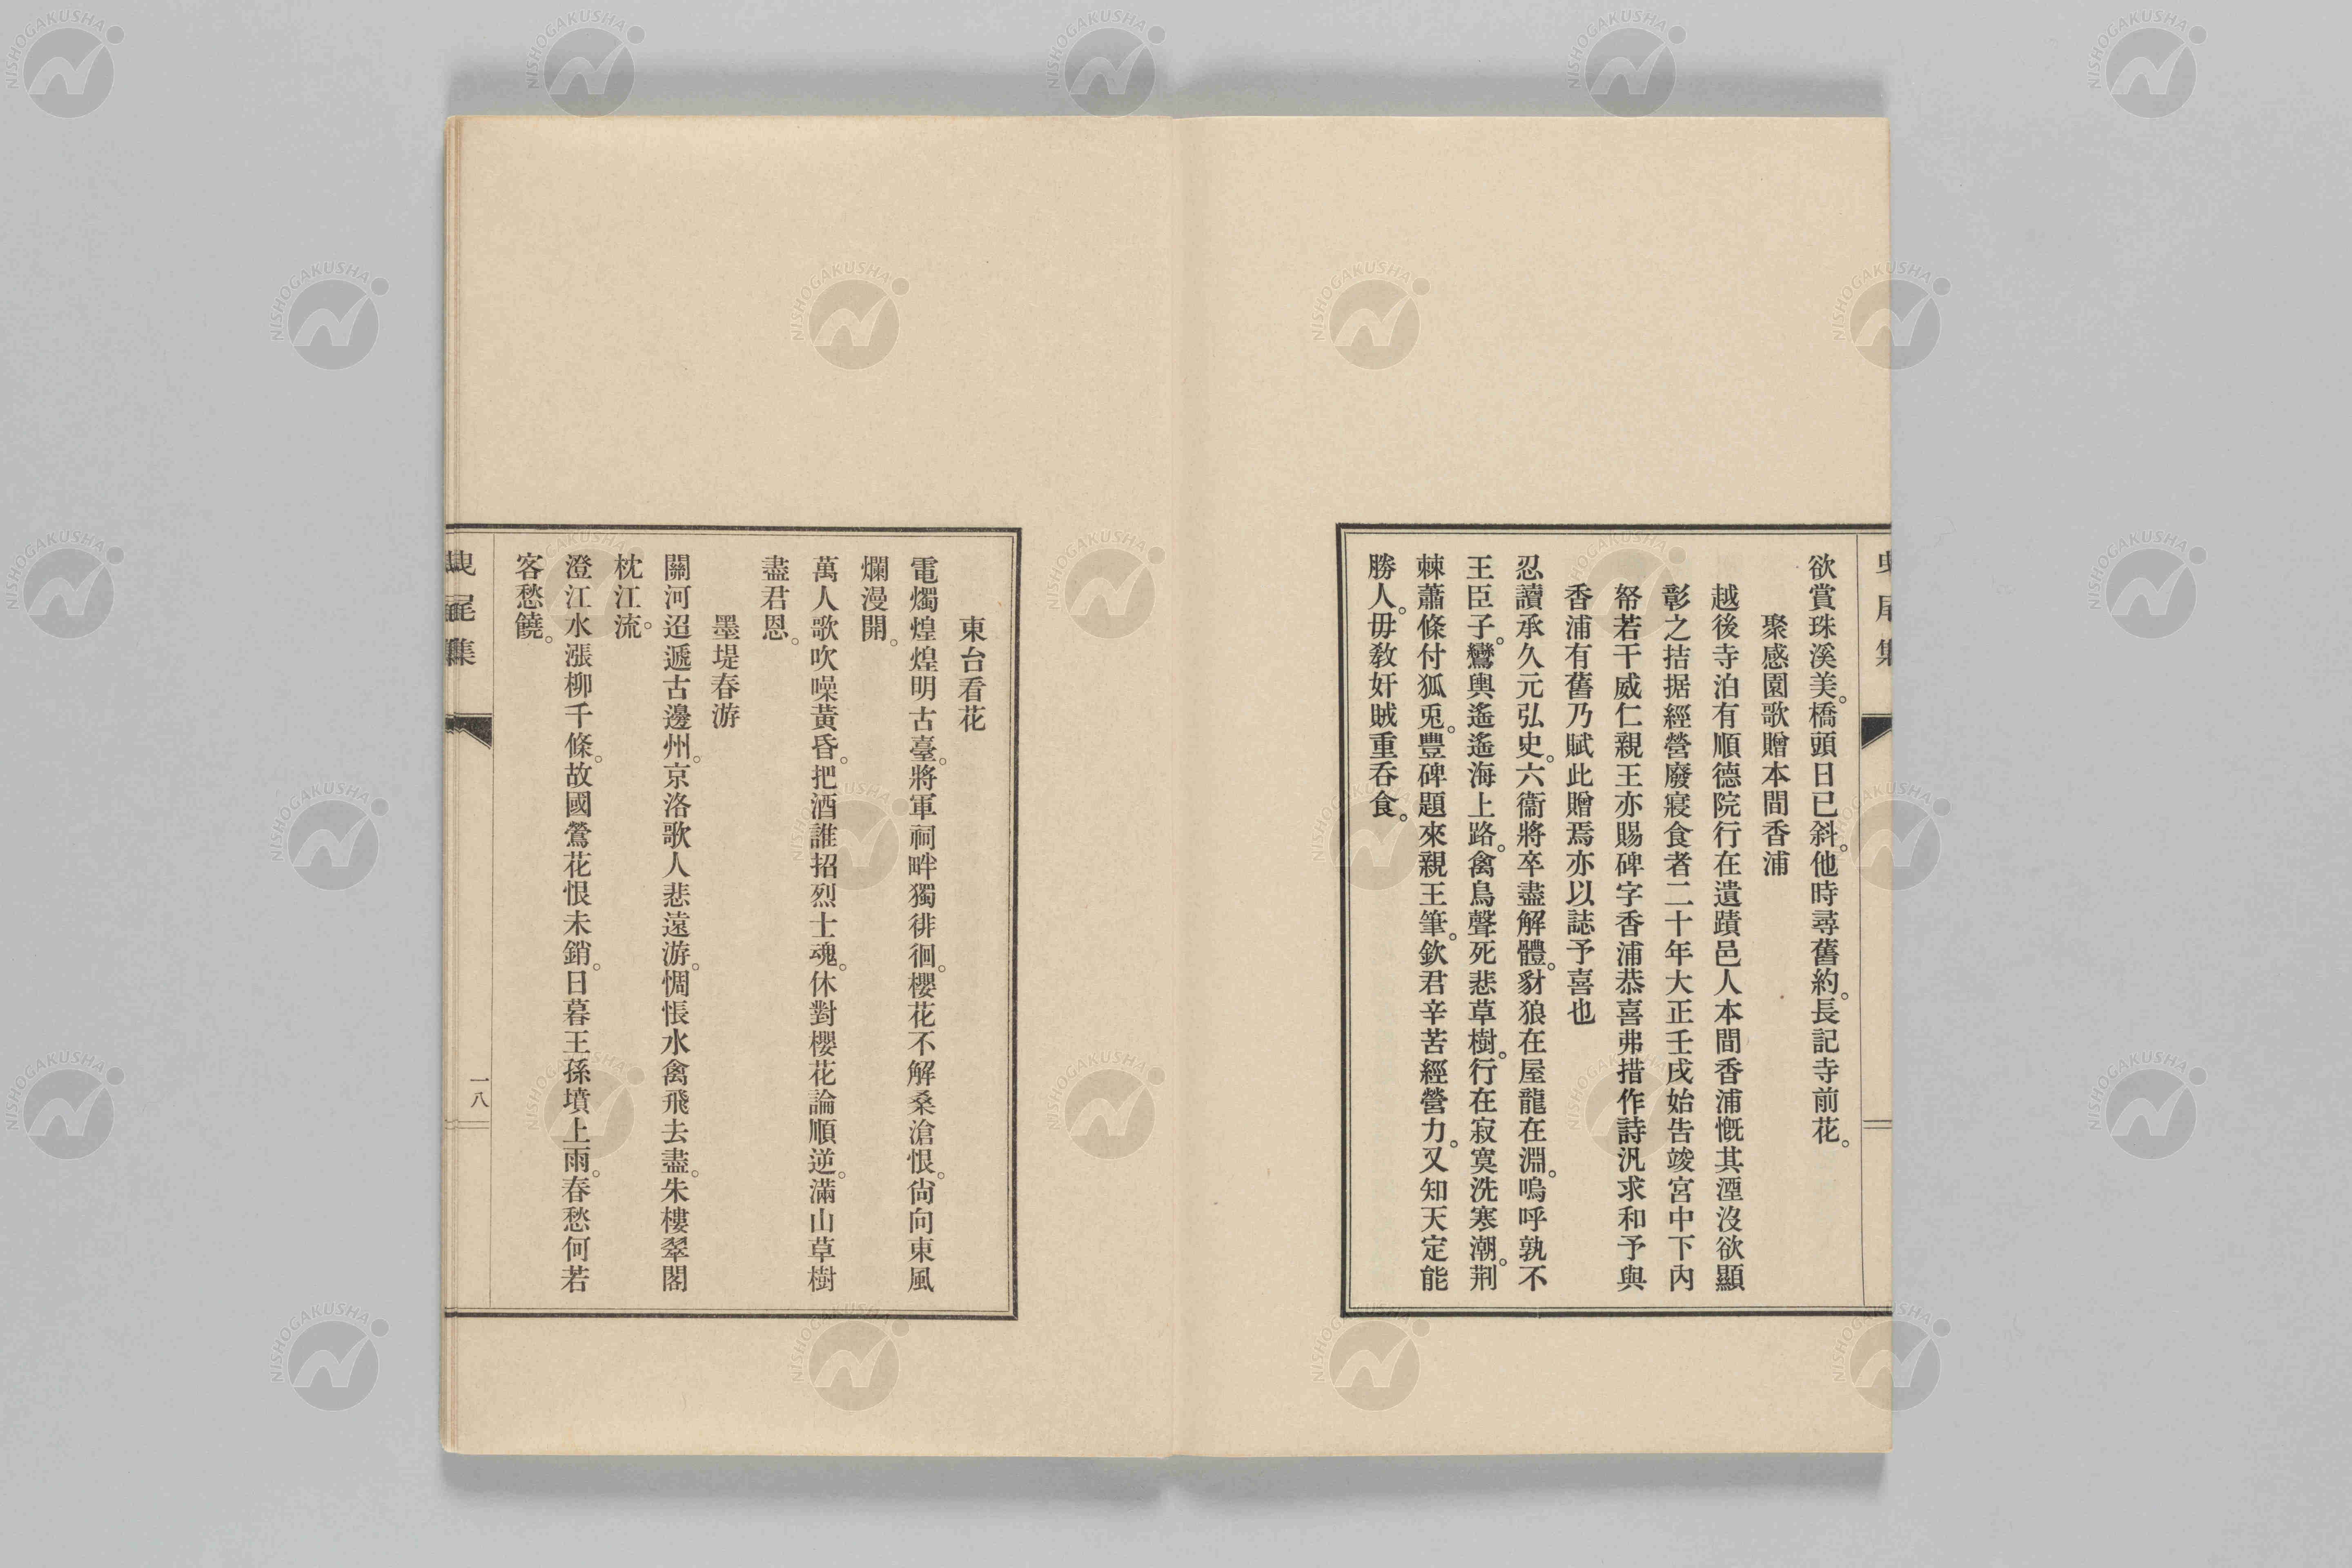 欲賞珠溪美。橋頭日已斜。他時尋舊約。長記寺前花。
聚感園歌贈本間香浦
越後寺泊有順德院行在遺蹟邑人本間香浦慨其湮沒欲顯
彰之拮据經營廢寢食者二十年大正壬戌始告竣宮中下內
帑若干威仁親王亦賜碑字香浦恭喜弗措作詩汎求和予與
香浦有舊乃賦此贈焉亦以誌予喜也
忍讀承久元弘史。六衞將卒盡解體。豺狼在屋龍在淵。嗚呼孰不
王臣子。鸞輿遙遙海上路。禽鳥聲死悲草樹。行在寂寞洗寒潮。荆
棘蕭條付狐兎。豐碑題來親王筆。欽君辛苦經營力。又知天定能
勝人。毋敎奸賊重呑食。
東台看花
電燭煌煌明古臺。將軍祠畔獨徘徊。櫻花不解桑滄恨。尙向東風
爛漫開。
萬人歌吹噪黃昏。把酒誰招烈士魂。休對櫻花論順逆。滿山草樹
盡君恩。
墨堤春游
關河迢遞古邊州。京洛歌人悲遠游。惆悵水禽飛去盡。朱樓翠閣
枕江流。
澄江水漲柳千條。故國鶯花恨未銷。日暮王孫墳上雨。春愁何若
客愁饒。
曳尾集
一八
NISHOGAKUSHA